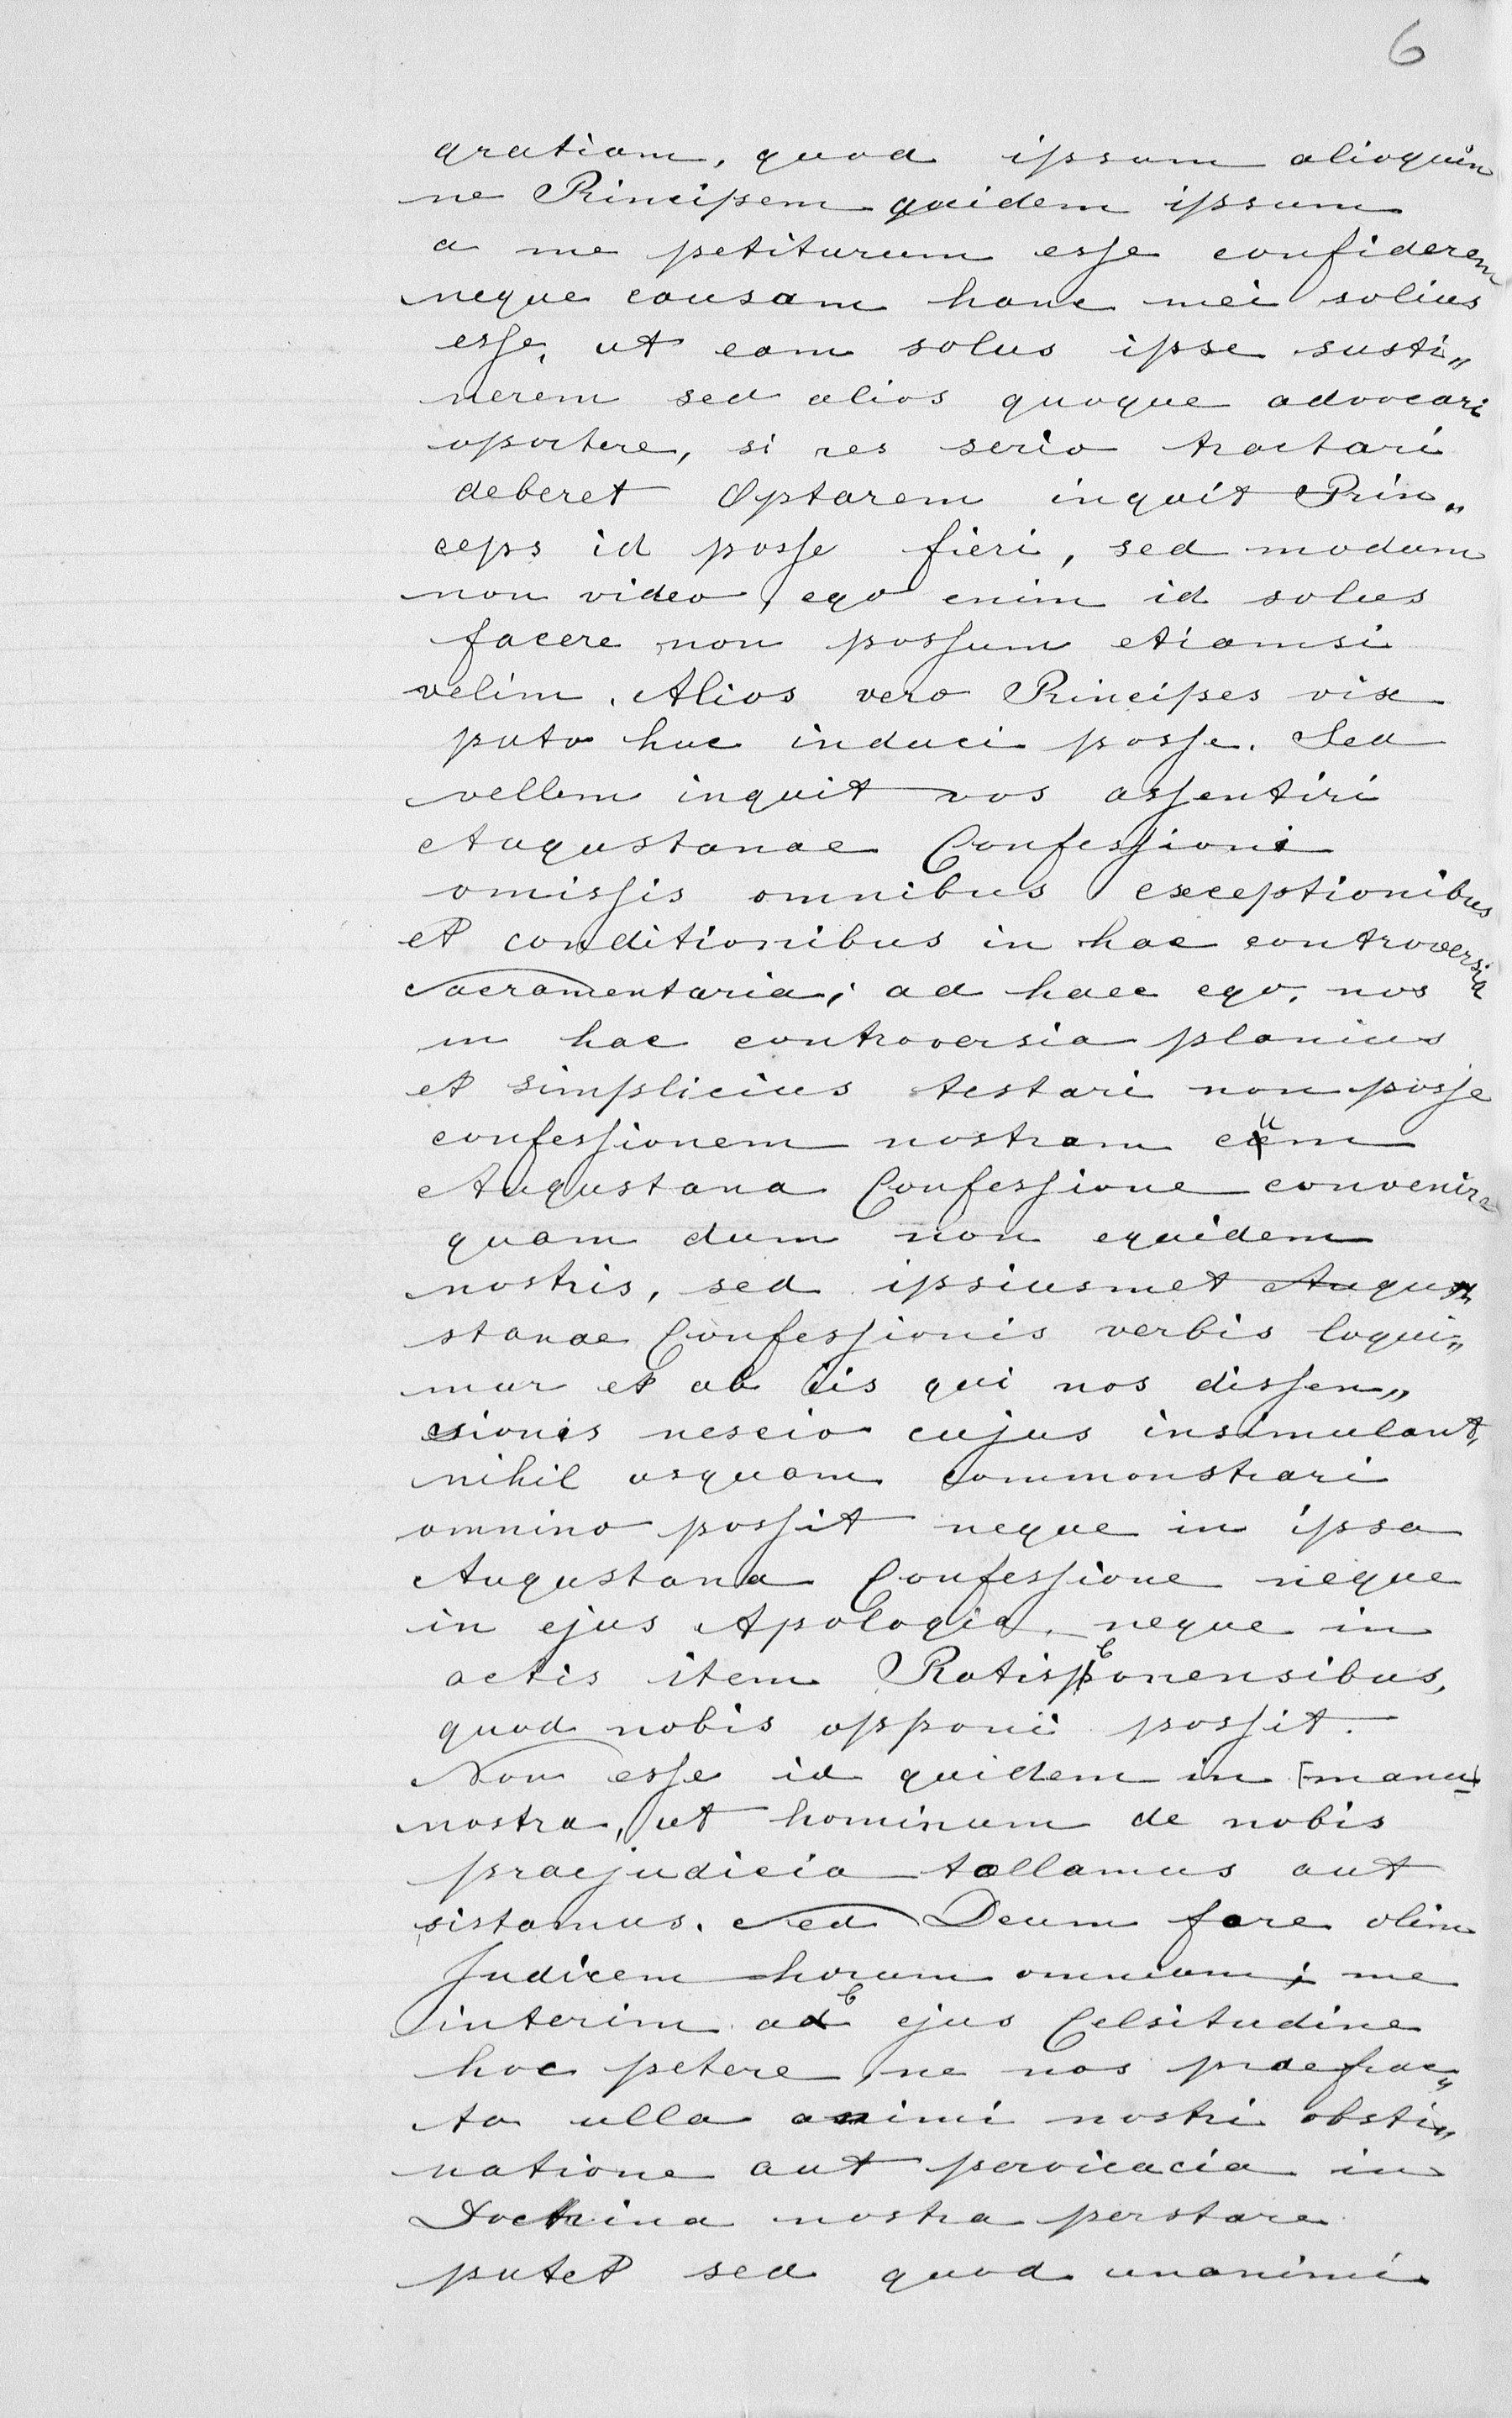 6
gratiam, quod ipsum alioquin
ne Principem quidem ipsum
a me petiturum esse confiderem
neque causam hanc mei solius
esse, ut eam solus ipse susti„
nerem sed alios quoque advocari
oportere, si res serio tractari
deberet Optarem inquit Prin„
ceps id posse fieri, sed modum
non video, ego enim id solus
facere non possum etiamsi
velim. Alios vero Principes vix
puto huc induci posse. Sed
vellem inquit vos assentiri
Augustanae Confessioni
omissis omnibus exceptionibus
et conditionibus in hac controversia
Sacramentaria; ad haec ego, nos
in hac controversia planius
et simplicius testari non posse
confessionem nostram cum
Augustana Confessione convenire
quam dum non equidem
nostris, sed ipsiusmet Augu„
stanae Confessionis verbis loqui„
mur et ab iis qui nos dissen„
sionis nescio cujus insimulant,
nihil usquam commonstrari
omnino possit neque in ipsa
Augustana Confessione neque
in ejus Apologia, neque in
actis item Ratisbonensibus,
quod nobis opponi possit.
Non esse id quidem in [manu]
nostra, ut hominum de nobis
praejudicia tollamus aut
sistamus. Sed Deum fore olim
Judicem horum omnium; me
interim ab ejus Celsitudine
hoc petere, ne nos praefrac„
ta ulla animi nostri obsti„
natione aut pervicacia in
Doctrina nostra perstare
putet sed quod unanimi